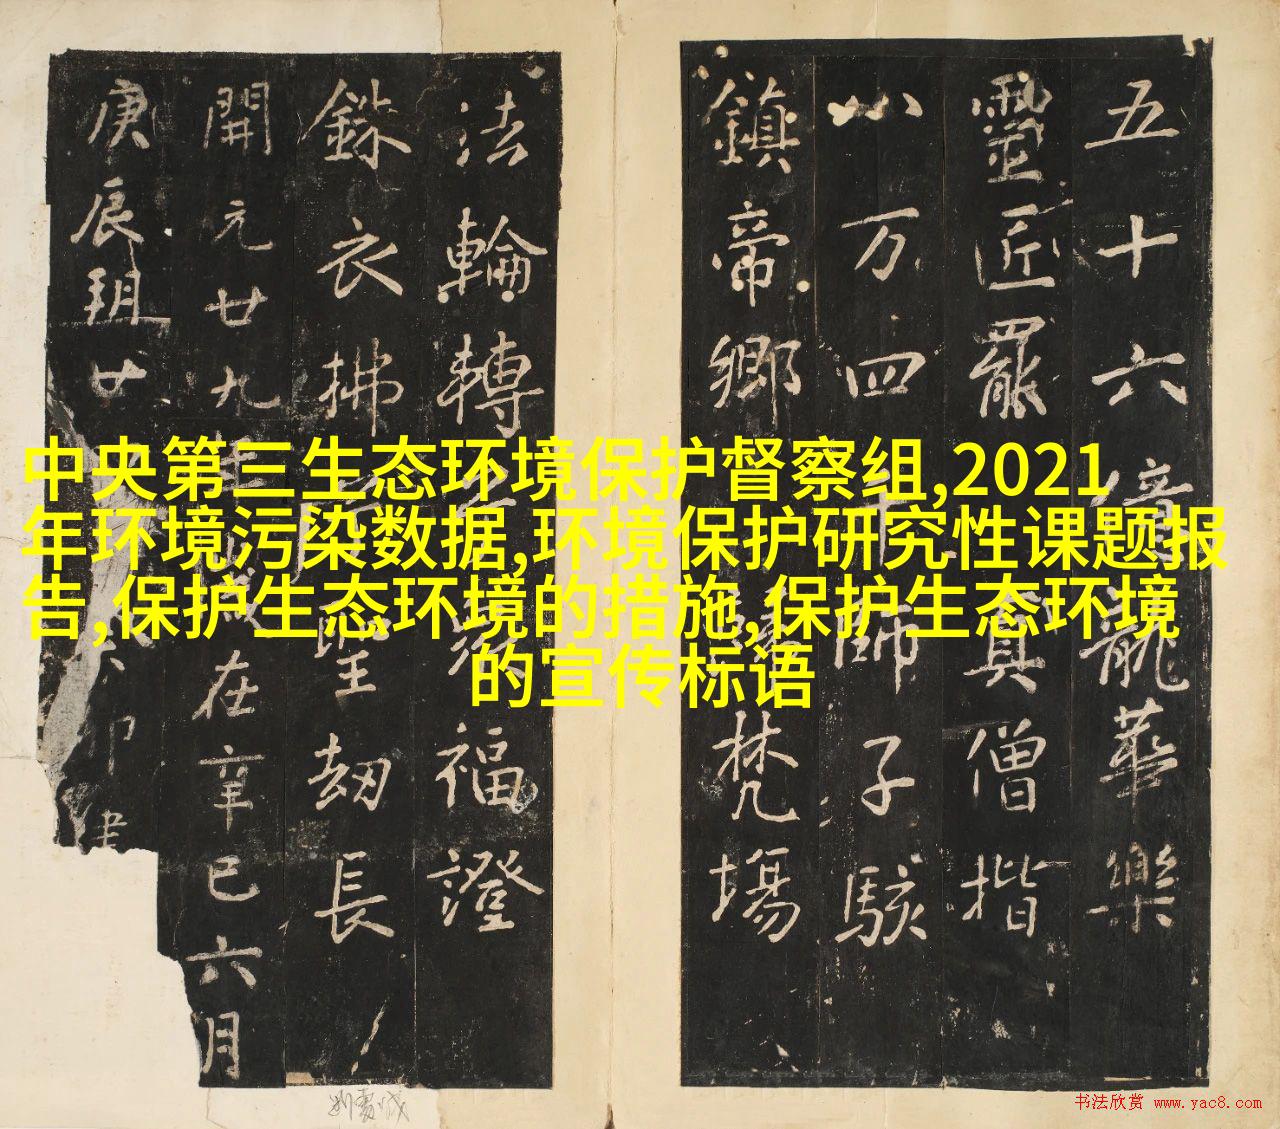 中央第三生态环境保护督察组,2021
年环境污染数据,环境保护研究性课题报
告,保护生态环境的措施,保护生态环境
的宣传标语
五十六億龍華樂
靈匠罷真僧揩
八万四師子駭
鎮帝鄉梵場
法輪轉福澄
銖衣拂聖劫長
開元廿九歲在辛巳六月
庚辰玥廿
书法欣赏 www.yac8.com